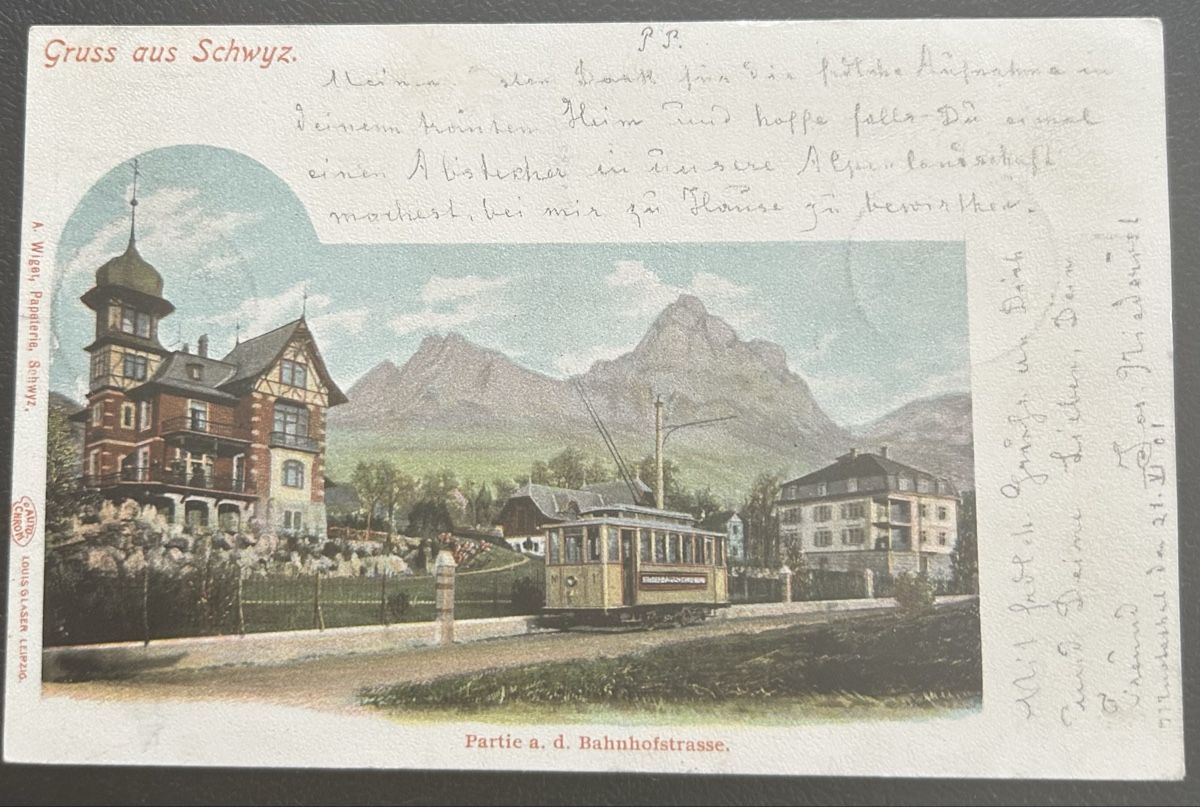 Gruss aus Schwyz.
P P.
Meinen Dank für die Aufnahme in
deinem trauten Heim und hoffe falls Du einmal
einen Abstecher in unsere Alpenlandschaft
machest, bei mir zu Hause zu bewirthen.
Mit Gruss an Dich
und Deine Lieben, Dein
Freund Jos.
den 21. VI 01
A. Wiget, Papeterie, Schwyz.
AUTO
CHROM
LOUIS GLASER LEIPZIG.
Partie a. d. Bahnhofstrasse.